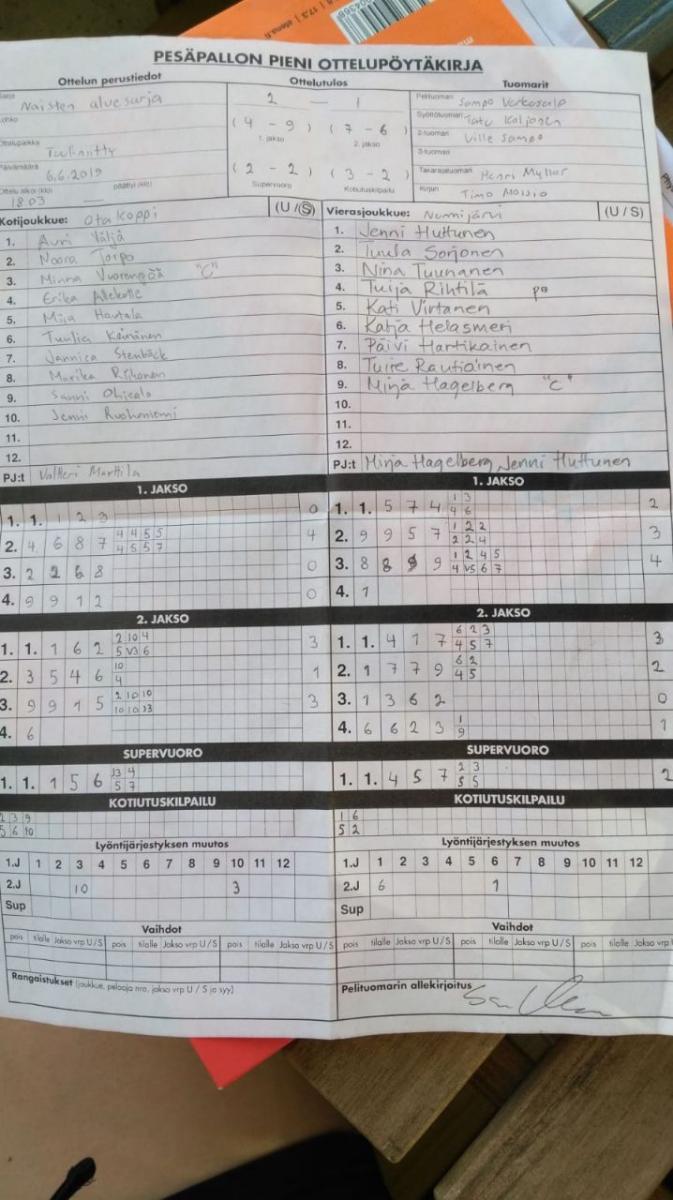 PESÄPALLON PIENI OTTELUPÖYTÄKIRJA
Ottelun perustiedot Ottelutulos Tuomarit
Naisten aluesarja 2 — 1 Pelituomari Sampo
Lohko (4 - 9) (7 - 6) Syöttötuomari Tatu
1. jakso 2. jakso 2-tuomari Ville Sampo
Ottelupaikka 3-tuomari
Päivämäärä 6.6.2019 (2 - 2) (3 - 2) Takarajatuomari Henri
Ottelu alkoi (klo) 18.03 päättyi (klo) Supervuoro Kotiutuskilpailu Kirjuri Timo
Kotijoukkue: Otakoppi (U / S) Vierasjoukkue: Nummijärvi (U / S)
1. Auri Väljä 1. Jenni Huttunen
2. Noora Torpo 2. Tuula Sorjonen
3. Minna "C" 3. Nina Tuunanen
4. Erika 4. Tuija Rihtilä
5. Miia Hautala 5. Kati Virtanen
6. Tuulia Keinänen 6. Katja Helasmeri
7. Jannica Stenbäck 7. Päivi Hartikainen
8. Marika Riihonen 8. Tuire Rautiainen
9. Sanni 9. Mirja Hagelberg "C"
10. Jenni Ruohoniemi 10.
11. 11.
12. 12.
PJ:t Valtteri Marttila PJ:t Mirja Hagelberg, Jenni Huttunen
1. JAKSO 1. JAKSO
1. 1. 1 2 3 0 1. 1. 5 7 4 1 3 2
4 6
2. 4 6 8 7 4 4 5 5 4 2. 9 9 5 7 1 2 2 3
4 5 5 7 2 2 4
3. 2 2 6 8 0 3. 8 8 9 9 1 2 4 5 4
4 V5 6 7
4. 9 9 1 2 0 4. 1
2. JAKSO 2. JAKSO
1. 1. 1 6 2 2 10 4 3 1. 1. 4 1 7 6 2 3 3
5 V3 6 4 5 7
2. 3 5 4 6 10 1 2. 1 7 7 9 6 2 2
4 4 5
3. 9 9 1 5 2 10 10 3 3. 1 3 6 2 0
10 10
4. 6 4. 6 6 2 3 1 1
9
SUPERVUORO SUPERVUORO
1. 1. 1 5 6 4 1. 1. 4 5 7 2 3 2
5 7 5 5
KOTIUTUSKILPAILU KOTIUTUSKILPAILU
2 3 9 1 6
5 6 10 5 2
Lyöntijärjestyksen muutos Lyöntijärjestyksen muutos
1.J 1 2 3 4 5 6 7 8 9 10 11 12 1.J 1 2 3 4 5 6 7 8 9 10 11 12
2.J 10 3 2.J 6 1
Sup Sup
Vaihdot Vaihdot
pois tilalle Jakso vrp U / S pois tilalle Jakso vrp U / S pois tilalle Jakso vrp U / S pois tilalle Jakso vrp U / S pois tilalle Jakso vrp U / S pois tilalle Jakso vrp U
Rangaistukset (joukkue, pelaaja nro, jakso vrp U / S ja syy) Pelituomarin allekirjoitus